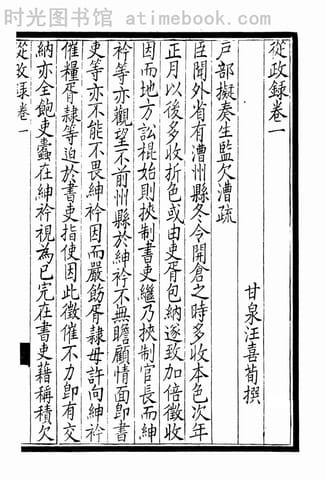 时光图书馆 - www.atimebook.com
從政録卷一
甘泉汪喜荀撰
戸部擬奏生監欠漕疏
臣聞外省有漕州縣冬令開倉之時多收本色次年
正月以後多收折色或由吏胥包納遂致加倍徵收
因而地方訟棍始則挾制書吏繼乃挾制官長而紳
衿等亦觀望不前州縣於紳衿不無瞻顧情面即書
吏等亦不能不畏紳衿因而嚴飭胥隸毋許向紳衿
催糧胥隸等迫於書吏指使因此徵催不力即有交
納亦全飽吏蠹在紳衿視為已完在書吏藉稱積欠
從政録卷一
一